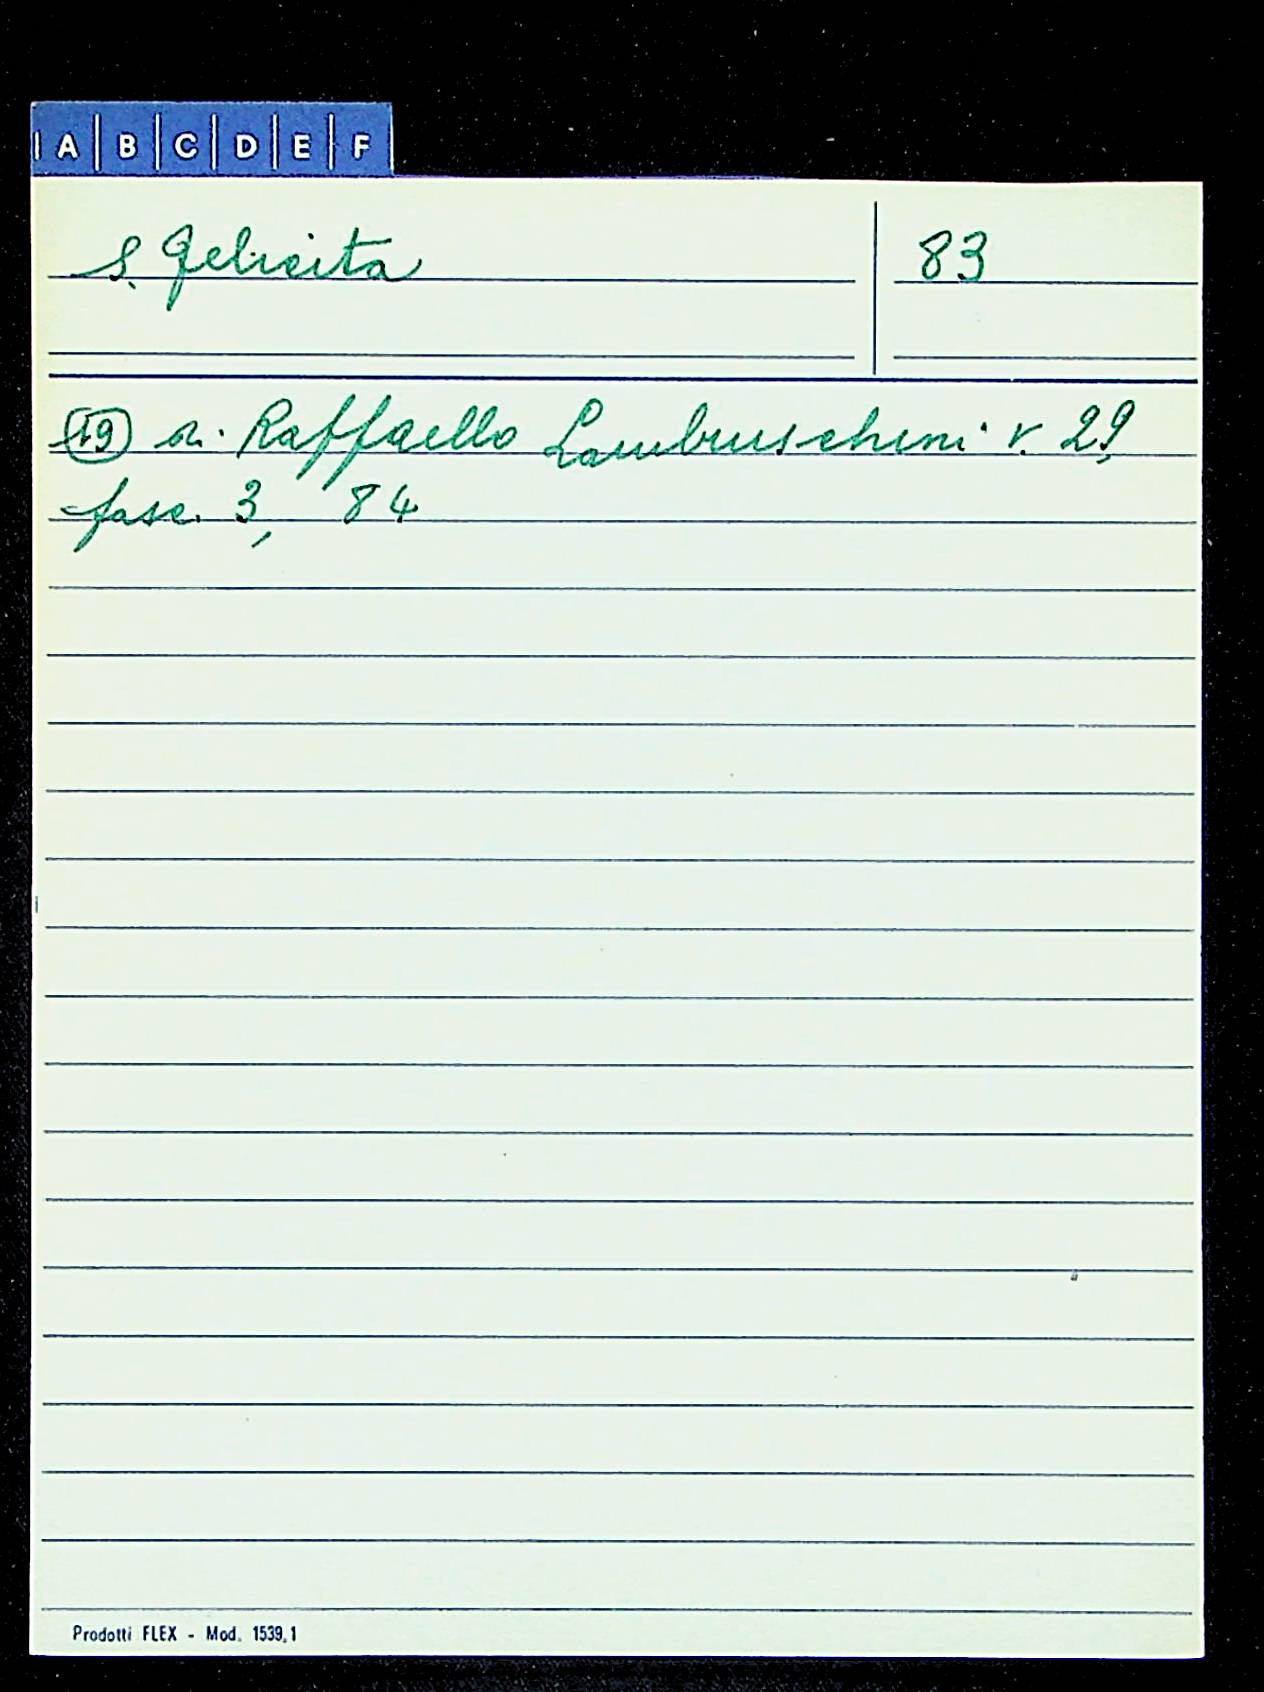 A B C D E F
S. Felicita 83
19 n. Raffaello Lambruschini v. 29,
fasc. 3, 84
Prodotti FLEX - Mod. 1539,1